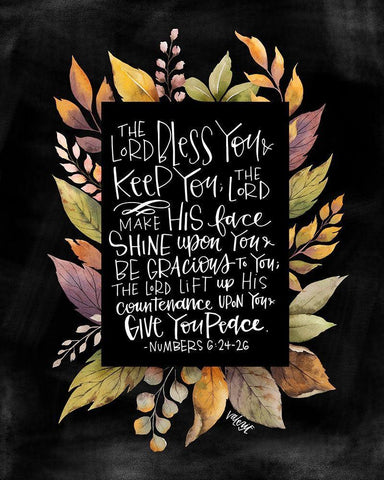 THE LORD BLESS YOU &
KEEP YOU; THE LORD
MAKE HIS face
SHINE upon You &
BE GRACIOUS TO YOU;
THE LORD LIFT up HIS
countenance UPON YOU &
GIVE YOU Peace.
-NUMBERS 6:24-26
valerie